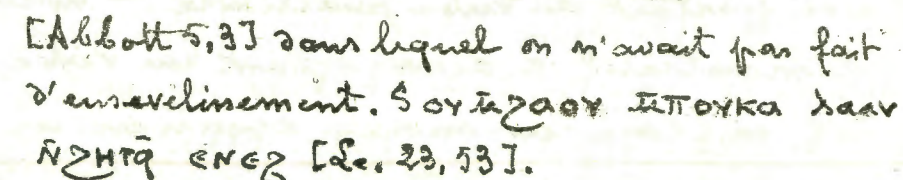 [Abbott 5,3] dans lequel on n'avait pas fait
d'ensevelissement. S ⲟⲩⲙ̄ϩⲁⲟⲩ ⲙ̄ⲡⲟⲩⲕⲁ ⲗⲁⲁⲩ
ⲛ̄ϩⲏⲧϥ̄ ⲉⲛⲉϩ [Lc. 23, 53].